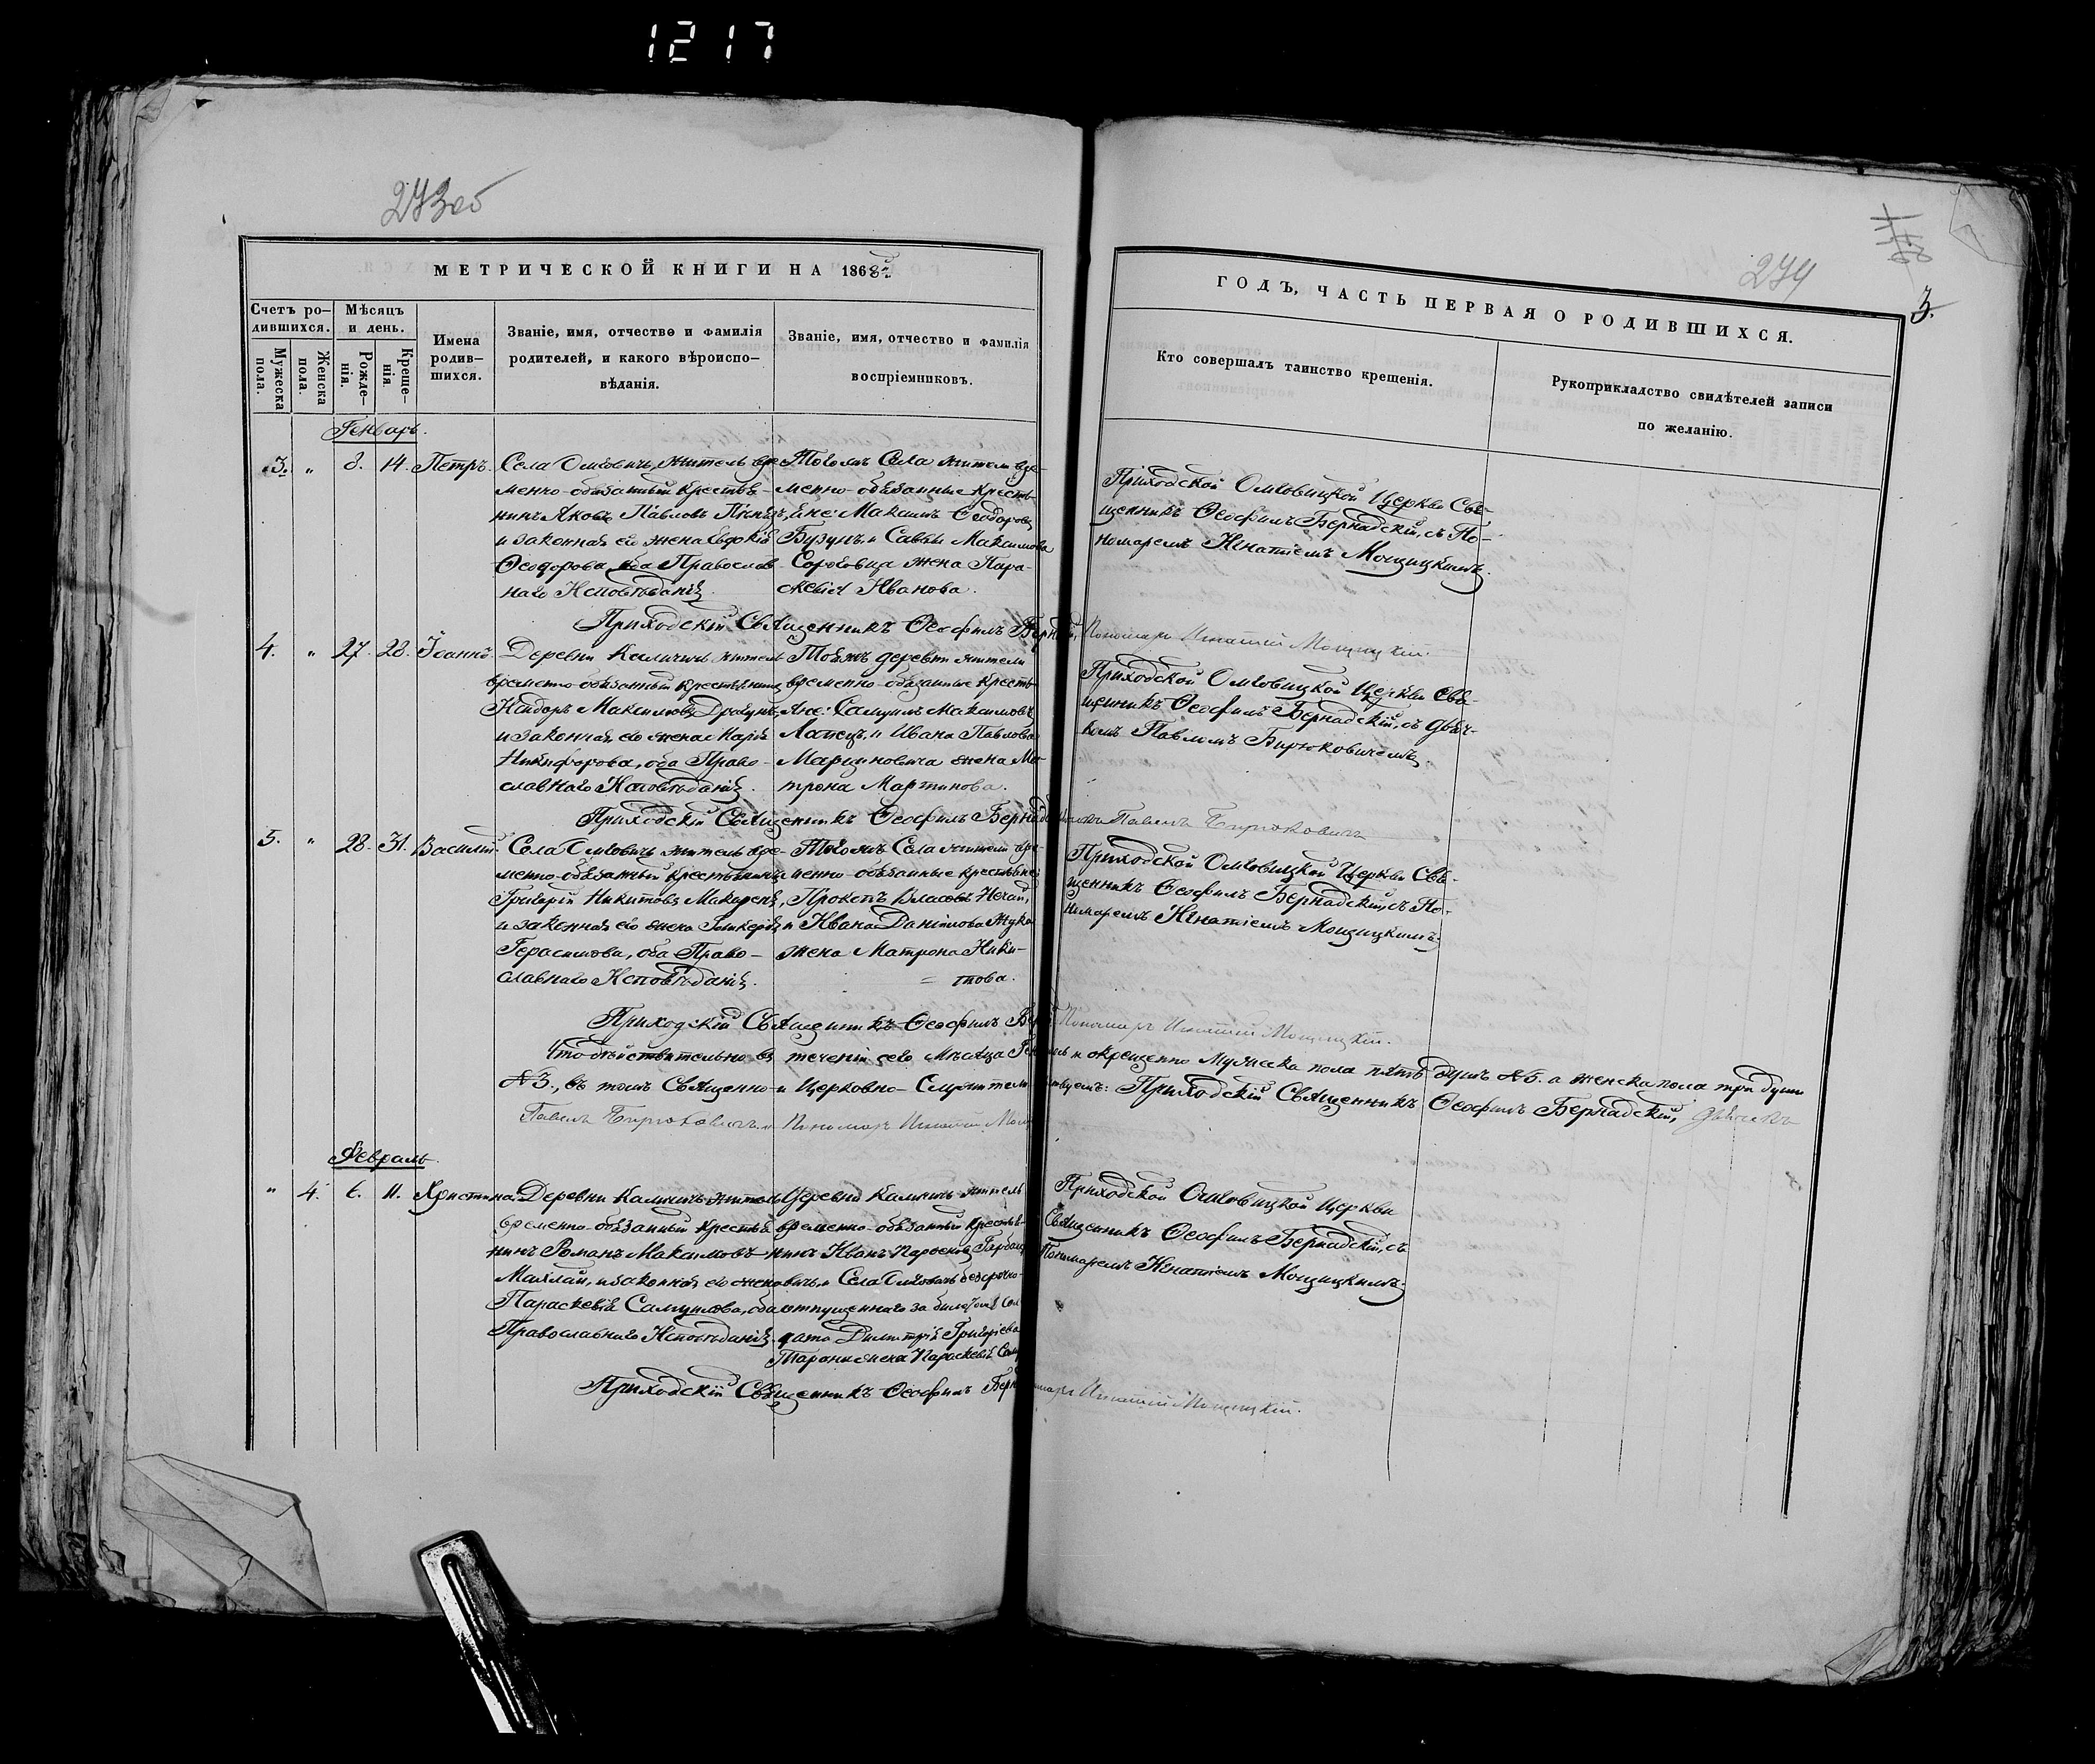 1217
273 об
274
3.
МЕТРИЧЕСКОЙ КНИГИ НА 1868й
ГОДЪ, ЧАСТЬ ПЕРВАЯ О РОДИВШИХСЯ.
Счетъ ро-
дившихся.
Мужеска
пола.
Женска
пола.
Мѣсяцъ
и день.
Рожде-
нія.
Креще-
нія.
Имена
родив-
шихся.
Званіе, имя, отчество и фамилія
родителей, и какого вѣроиспо-
вѣданія.
Званіе, имя, отчество и фамилія
воспріемниковъ.
Кто совершалъ таинство крещенія.
Рукоприкладство свидѣтелей записи
по желанію.
Генварь.
3. " 8. 14. Петръ.
Села Омговичъ, житель вре-
менно-обязанный крестья-
нинъ Яковъ Павловъ
и законная его жена Евдокія
Ѳеодорова, оба Православ-
наго Исповѣданія.
Тогожъ Села жители вре-
менно-обязанные кресть-
яне: Максимъ Ѳеодоровъ
Бузунъ, и Саввы Максимова
жена Пара-
скевія Иванова.
Приходской Омговицкой Церкви Свя-
щенникъ Ѳеофилъ Бернадскій, съ По-
номаремъ Игнатіемъ Мощицкимъ.
Приходскій Священникъ Ѳеофилъ
Пономарь Игнатій Мощицкій.
4. " 27. 28. Іоаннъ.
Деревни Каличичъ житель
временно-обязанный крестьянинъ
Исидоръ Максимовъ Драгунъ,
и законная его жена Марія
Никифорова, оба Право-
славнаго Исповѣданія.
Тойжъ деревни жители
временно-обязанные кресть-
яне: Самуилъ Максимовъ
и Ивана Павлова
Марциновича жена Ма-
трона Мартинова.
Приходской Омговицкой Церкви Свя-
щенникъ Ѳеофилъ Бернадскій, съ Дьяч-
комъ Павломъ Бирюковичемъ.
Приходскій Священникъ Ѳеофилъ
Павелъ Бирюковичъ
5. " 28. 31. Василій.
Села Омговичъ житель вре-
менно-обязанный крестьянинъ
Григорій Никитовъ
и законная его жена Гликерія
Герасимова, оба Право-
славнаго Исповѣданія.
Тогожъ Села жители вре-
менно-обязанные крестьяне:
Прокопъ Власовъ Нехай,
и Ивана Даніилова Жука
жена Матрона Ники-
това.
Приходской Омговицкой Церкви Свя-
щенникъ Ѳеофилъ Бернадскій, съ По-
номаремъ Игнатіемъ Мощицкимъ.
Приходскій Священникъ Ѳеофилъ
Пономарь Игнатій Мощицкій.
Что дѣйствительно въ теченіи сего Мѣсяца и окрещенно Мужеска пола пять душъ №5. а женска пола три души
№3., въ томъ Священно-и Церковно- Приходскій Священникъ Ѳеофилъ Бернадскій, Дьячекъ
Павелъ Бирюковичъ и Пономарь Игнатій
Февраль.
" 4. 6. 11. Христина.
Деревни Каличичъ житель
временно-обязанный крестья-
нинъ Романъ Максимовъ
Махлай, и законная его жена
Параскевія Самуилова, оба
Православнаго Исповѣданія.
Деревни Каличичъ житель
временно-обязанный крестья-
нинъ Иванъ
и Села Омговичъ безсрочно-
отпущеннаго за билетомъ Сол-
дата Димитрія Григорьева
жена Параскевія
Приходской Омговицкой Церкви
Священникъ Ѳеофилъ Бернадскій, съ
Пономаремъ Игнатіемъ Мощицкимъ.
Приходскій Священникъ Ѳеофилъ
Игнатій Мощицкій.